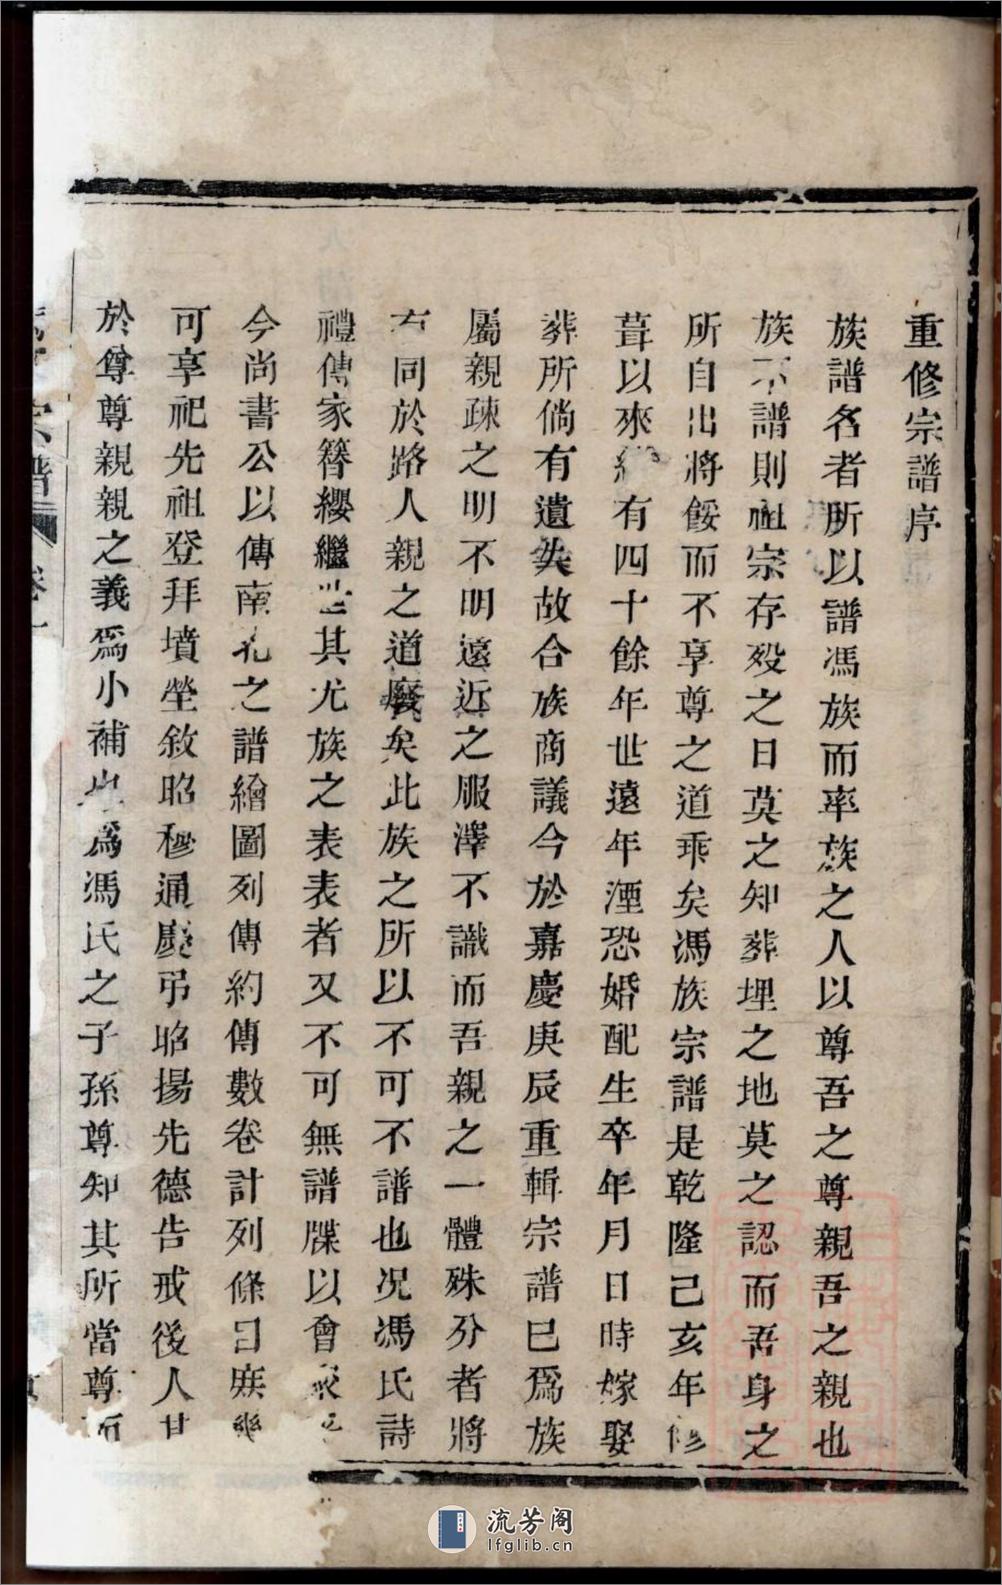 重修宗譜序
族譜名者所以譜馮族而率族之人以尊吾之尊親吾之親也
族不譜則祖宗存歿之日莫之知葬埋之地莫之認而吾身之
所自出將餒而不享尊之道乖矣馮族宗譜是乾隆己亥年修
葺以來經有四十餘年世遠年湮恐婚配生卒年月日時嫁娶
葬所倘有遺失故合族商議今於嘉慶庚辰重輯宗譜已為族
屬親疎之明不明遠近之服澤不識而吾親之一體殊分者將
有同於路人親之道廢矣此族之所以不可不譜也況馮氏詩
禮傳家簪纓繼世其尤族之表表者又不可無譜牒以會
今尚書公以傳南北之譜繪圖列傳約傳數卷計列條目庶幾
可享祀先祖登拜墳塋敘昭穆通慶弔昭揚先德告戒後人其
於尊尊親親之義為小補也為馮氏之子孫尊知其所當尊而
宗譜 卷一
流芳阁
lfglib.cn